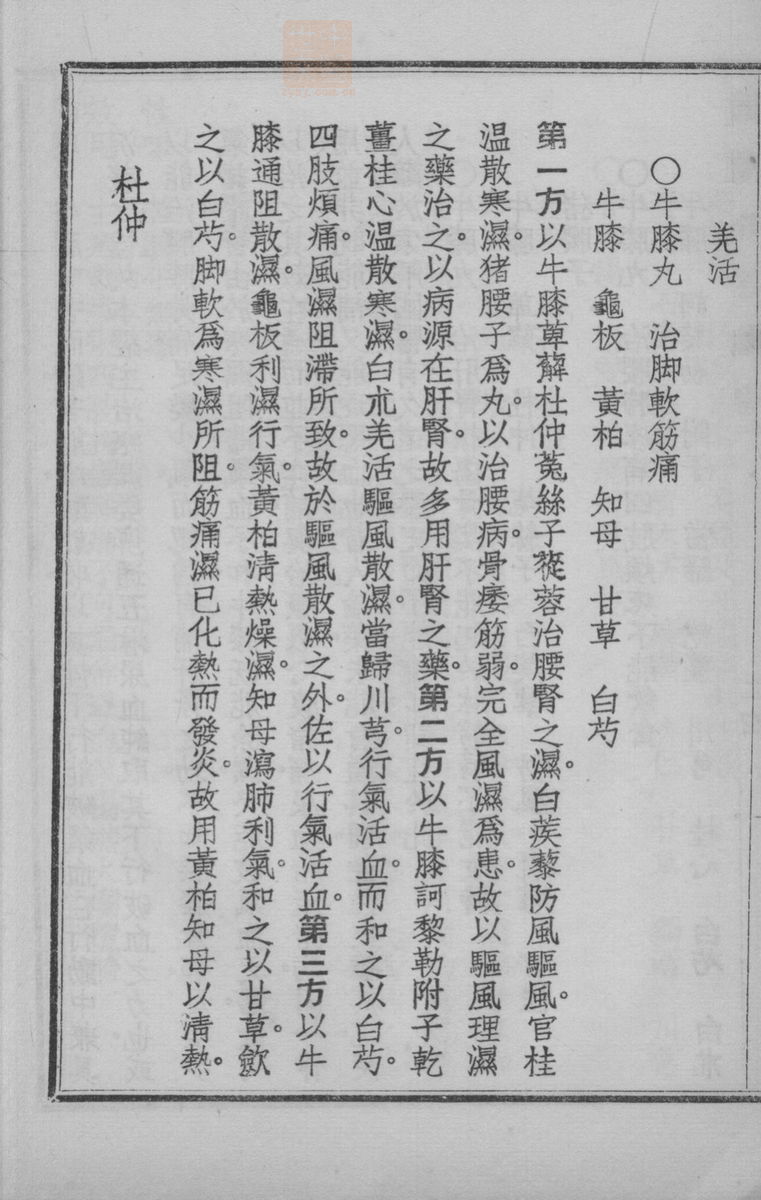 羌活
○牛膝丸　治脚軟筋痛
牛膝　龜板　黃柏　知母　甘草　白芍
第一方以牛膝萆薢杜仲菟絲子蓯蓉治腰腎之濕。白蒺藜防風驅風。官桂
温散寒濕。猪腰子爲丸。以治腰病。骨痿筋弱。完全風濕爲患。故以驅風理濕
之藥治之。以病源在肝腎。故多用肝腎之藥。第二方以牛膝訶黎勒附子乾
薑桂心温散寒濕。白朮羌活驅風散濕。當歸川芎。行氣活血。而和之以白芍。
四肢煩痛。風濕阻滯所致。故於驅風散濕之外。佐以行氣活血。第三方以牛
膝通阻散濕。龜板利濕行氣。黃柏淸熱燥濕。知母瀉肺利氣。和之以甘草。歛
之以白芍。脚軟爲寒濕所阻。筋痛濕已化熱而發炎。故用黃柏知母以淸熱。
杜仲